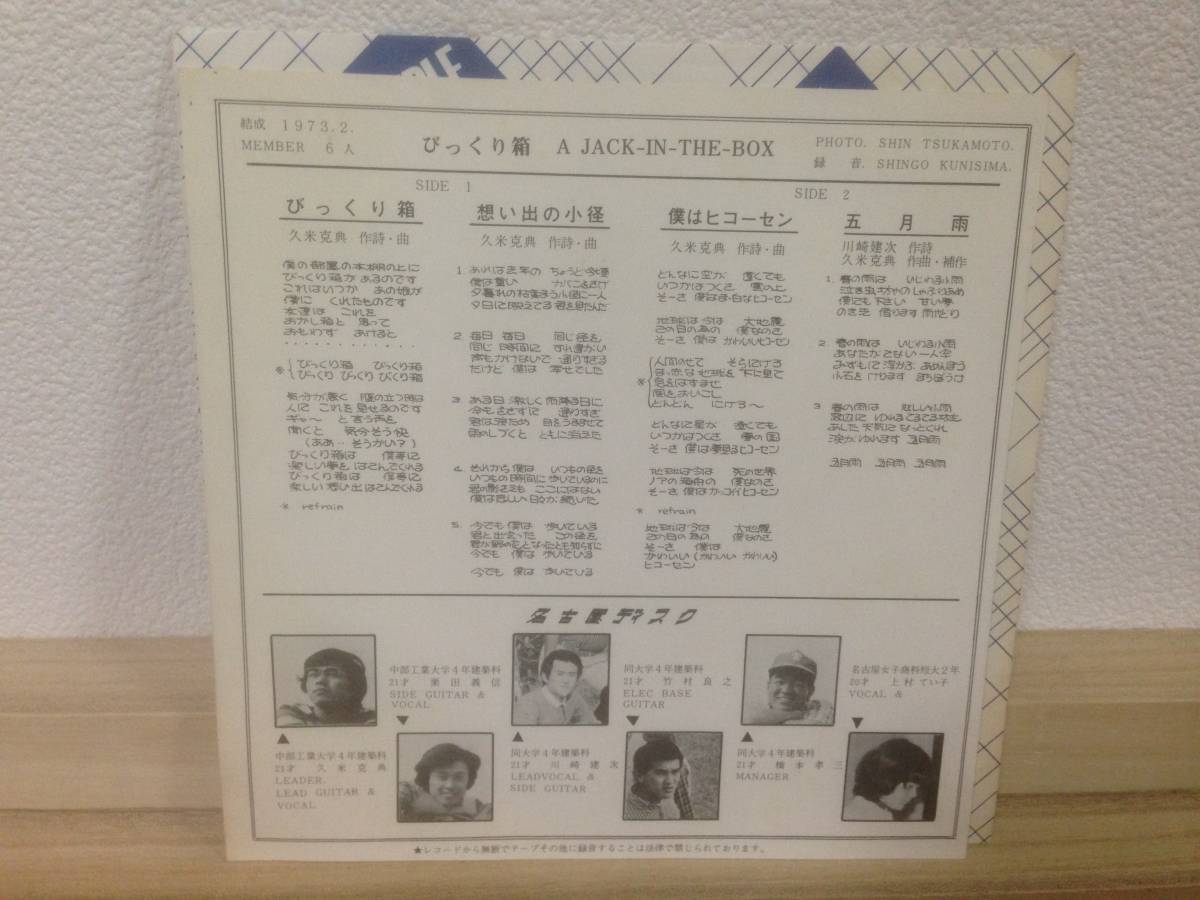 結成 1973.2.
MEMBER 6人
びっくり箱 A JACK-IN-THE-BOX
PHOTO. SHIN TSUKAMOTO.
録 音. SHINGO KUNISIMA.
SIDE 1
びっくり箱
久米克典 作詩・曲
僕の部屋の本棚の上に
びっくり箱が あるのです
これはいつか あの娘が
僕に くれたものです
友達は これを
おかし箱と 思って
おもわず あけると
・・・・・・・・・・・・
※ びっくり箱 びっくり箱
びっくり びっくり びっくり箱
気分が悪く 腹の立つ時は
人に これを見せるのです
ギャ〜 と言う声を
聞くと 気分そう快
(ああ‥そうかい?)
びっくり箱は 僕等に
楽しい夢を はこんでくれる
びっくり箱は 僕等に
楽しい想い出はこんでくれる
※ refrain
想い出の小径
久米克典 作詩・曲
1. あれは去年の ちょうど今頃
僕は重い カバンをさげ
夕暮れの枯葉まう小径に一人
夕日に映えてる君を見たんだ
2. 毎日 毎日 同じ径を
同じ時間に すれ違がい
声もかけないで 通りすぎる
だけど 僕は 幸せでした
3. ある日 激しく雨降る日に
傘もささずに 通りすぎ
君は涙ため 目をうるませて
雨のしづくと ともに消えた
4. それから僕は いつもの径を
いつもの時間に 歩いているのに
君の影さえも ここにはない
僕は悲しい日々が 続いた
5. 今でも 僕は 歩いている
君と出会った この径を
今でも 僕は 歩いている
今でも 僕は 歩いている
僕はヒコーセン
久米克典 作詩・曲
どんなに空が 遠くても
いつかはつくさ 雲の上
そーさ 僕はま白なヒコーセン
地球は今は 大地震
この日の為の 僕なのさ
そーさ 僕は かわいいヒコーセン
※ 人間のせて そらにげろ
まっ赤な 地球を 下に見て
鳥をはずませ
風をおいこし
どんどん にげろ〜
どんなに星が 遠くても
いつかはつくさ 夢の国
そーさ 僕は夢見るヒコーセン
地球は今は 死の世界
ノアの箱舟の 僕なのさ
そーさ 僕はかっコイイヒコーセン
※ refrain
地球は今は 大地震
この日の為の 僕なのさ
そーさ 僕は
かわいい (かわいい かわいい)
ヒコーセン
SIDE 2
五月雨
川崎建次 作詩
久米克典 作曲・補作
1. 春の雨は いじわる小雨
泣き虫坊やの しゃぶりあめ
僕にも下さい 甘い夢
のき先 借ります 雨やどり
2. 春の雨は いじわる小雨
あなたがこない 一人空
みずもに浮かぶ あめんぼう
小石を けります まちぼうけ
3. 春の雨は 悲しい小雨
窓辺に ゆれる てるてる坊主
あした天気に なっとくれ
涙が ゆれます 五月雨
五月雨 五月雨 五月雨
名古屋ディスク
中部工業大学4年建築科
21才 栗田義信
SIDE GUITAR &
VOCAL
同大学4年建築科
21才 竹村良之
ELEC BASE
GUITAR
名古屋女子商科短大2年
20才 上村てい子
VOCAL &
中部工業大学4年建築科
21才 久米克典
LEADER,
LEAD GUITAR &
VOCAL
同大学4年建築科
21才 川崎建次
LEADVOCAL &
SIDE GUITAR
同大学4年建築科
21才 橋本孝三
MANAGER
★レコードから無断でテープその他に録音することは法律で禁じられております。